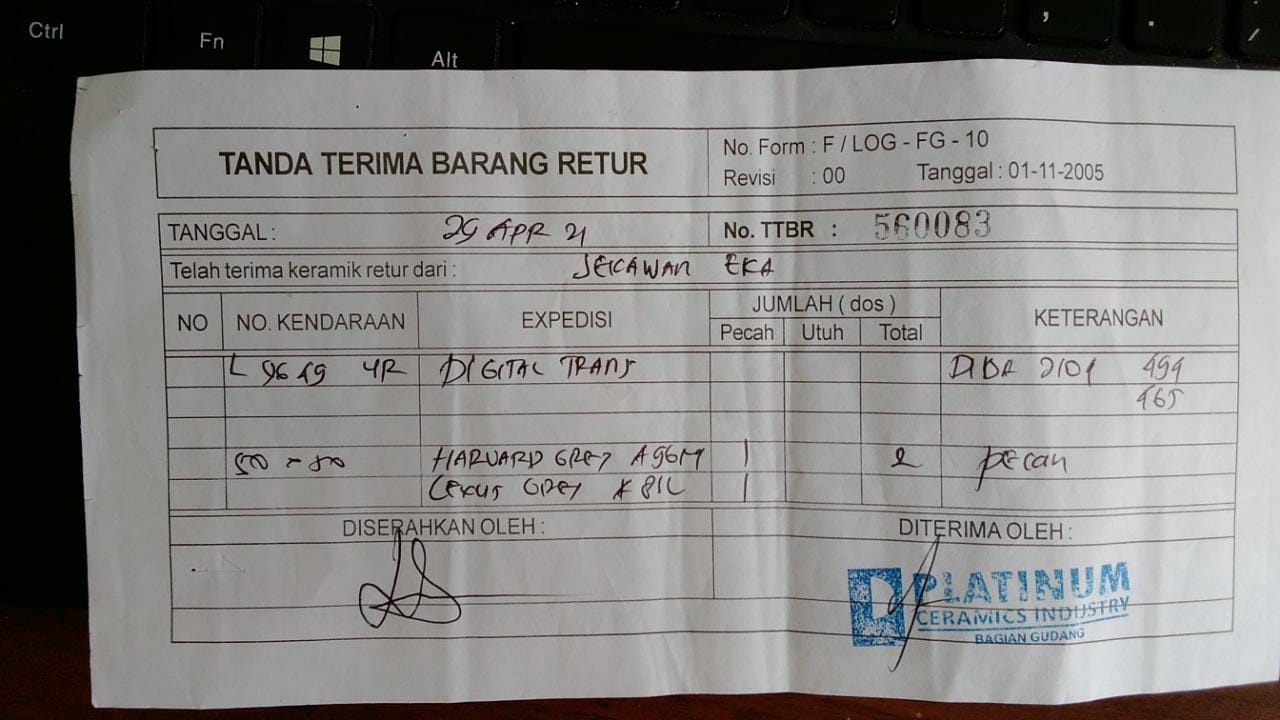 Ctrl
Fn
Alt
TANDA TERIMA BARANG RETUR
No. Form : F / LOG - FG - 10
Revisi : 00 Tanggal : 01-11-2005
TANGGAL : 29 APR 21 No. TTBR : 560083
Telah terima keramik retur dari : JEKAWAN EKA
NO NO. KENDARAAN EXPEDISI JUMLAH ( dos ) KETERANGAN
Pecah Utuh Total
L 9649 UR DIGITAL TRANS 2101 494
465
50 x 50 HARVARD GREY 1 2 pecah
LEXUS GREY 1
DISERAHKAN OLEH : DITERIMA OLEH :
PLATINUM
CERAMICS INDUSTRY
BAGIAN GUDANG